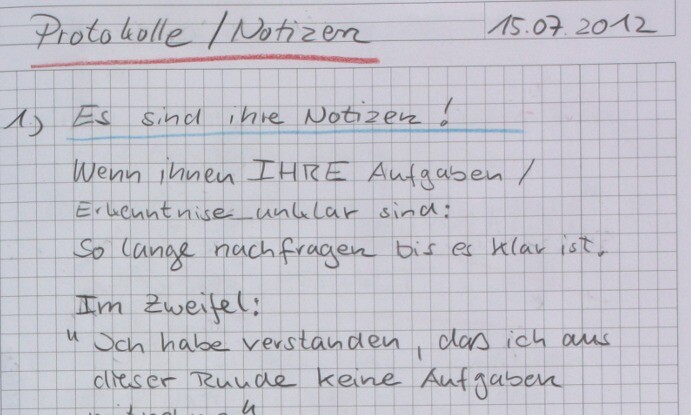 Protokolle / Notizen 15.07.2012
1.) Es sind ihre Notizen !
Wenn ihnen IHRE Aufgaben /
Erkenntnise unklar sind:
So lange nachfragen bis es klar ist.
Im Zweifel:
" Ich habe verstanden, das ich aus
dieser Runde keine Aufgaben